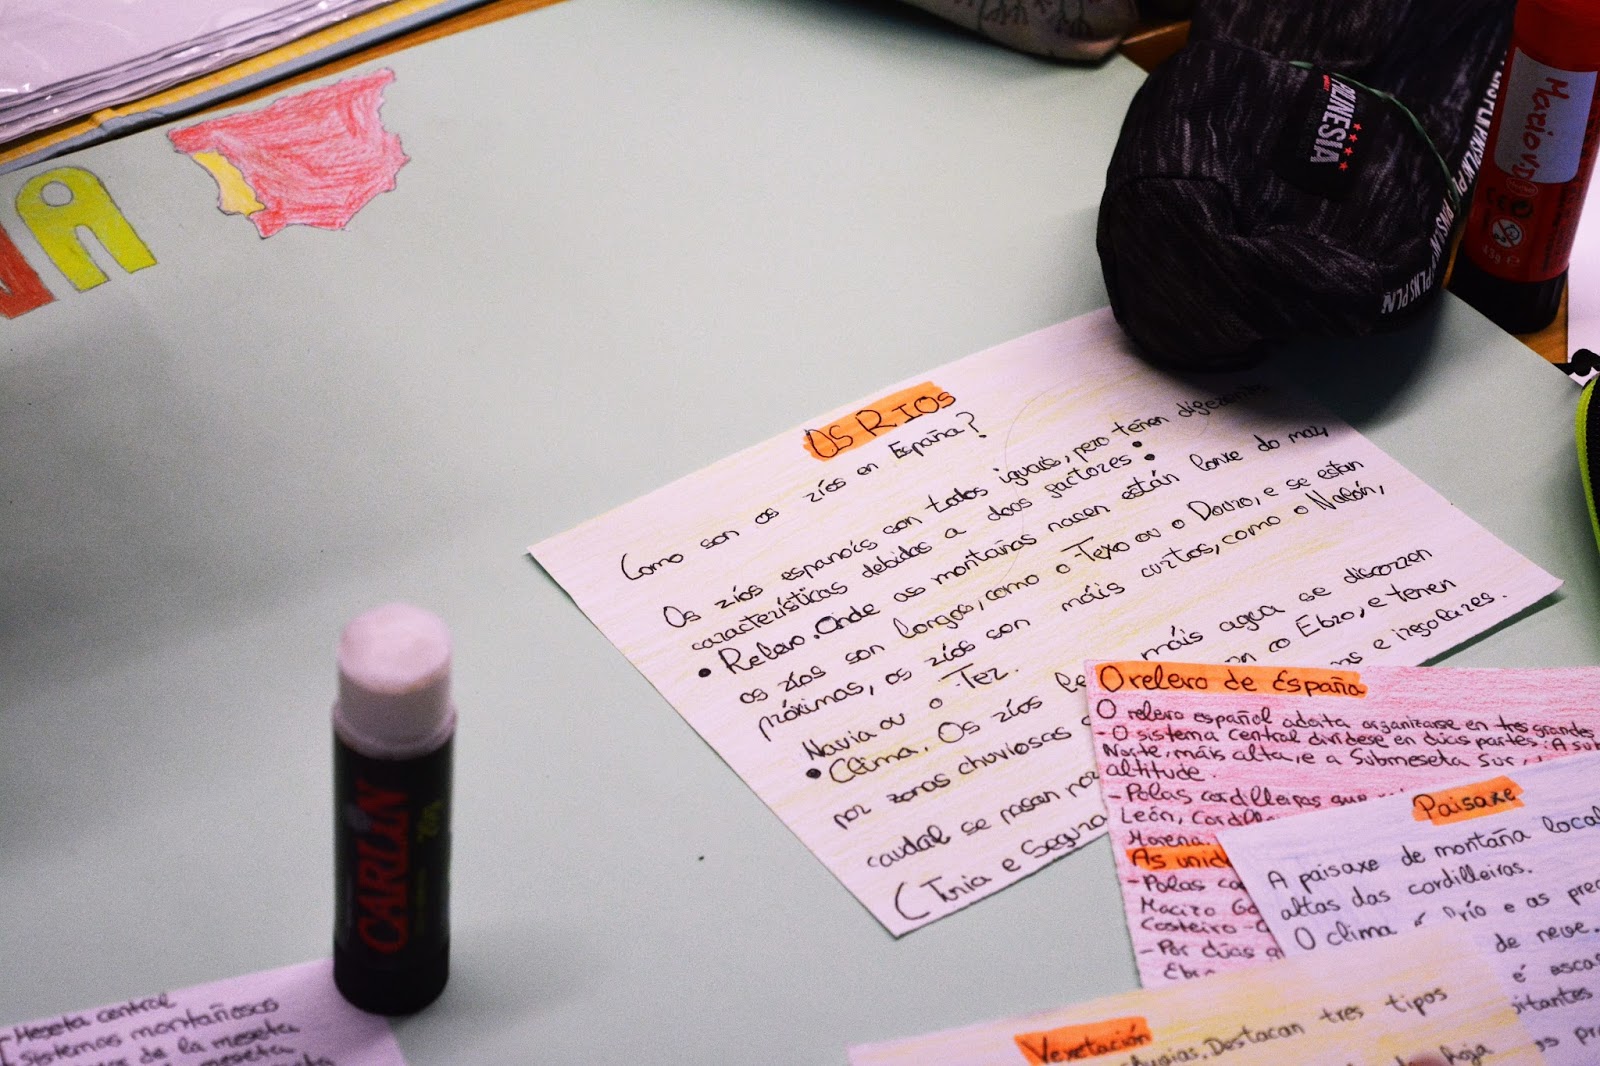 OS RIOS
Como son os ríos en España?
Os ríos espanois son todos iguais, pero teñen diferentes
características debidas a doos factores:
• Relevo. Onde as montañas nacen están lonxe do mar,
os ríos son longos, como o Texo ou o Douro, e se están
próximas, os ríos son máis curtos, como o Nalón,
Navia ou o Tez.
• Clima. Os ríos máis agua se discorren
por zonas chuviosas co Ebro, e teñen
caudal se pasan por e irregolares.
(Turia e Segura
O relevo de España
O relevo español adoita organizarse en tres grandes
- O sistema central divídese en dúas partes: A sub
Norte, máis alta, e a Submeseta Sur,
altitude.
- Polas cordilleiras que
León, Cordill
Morena.
As unid
- Polas co
Macizo Ga
Costeiro-C
- Por dúas
Ebr
Paisaxe
A paisaxe de montaña local
altas das cordilleiras.
O clima é frío e as prec
de neve.
é escas
itantes
Vexetación
Destacan tres tipos
folla
Meseta central
Sistemas montañosos
da meseta
meseta
CARLIN
POLINESIA
PLNS PLNS PLNS
43g